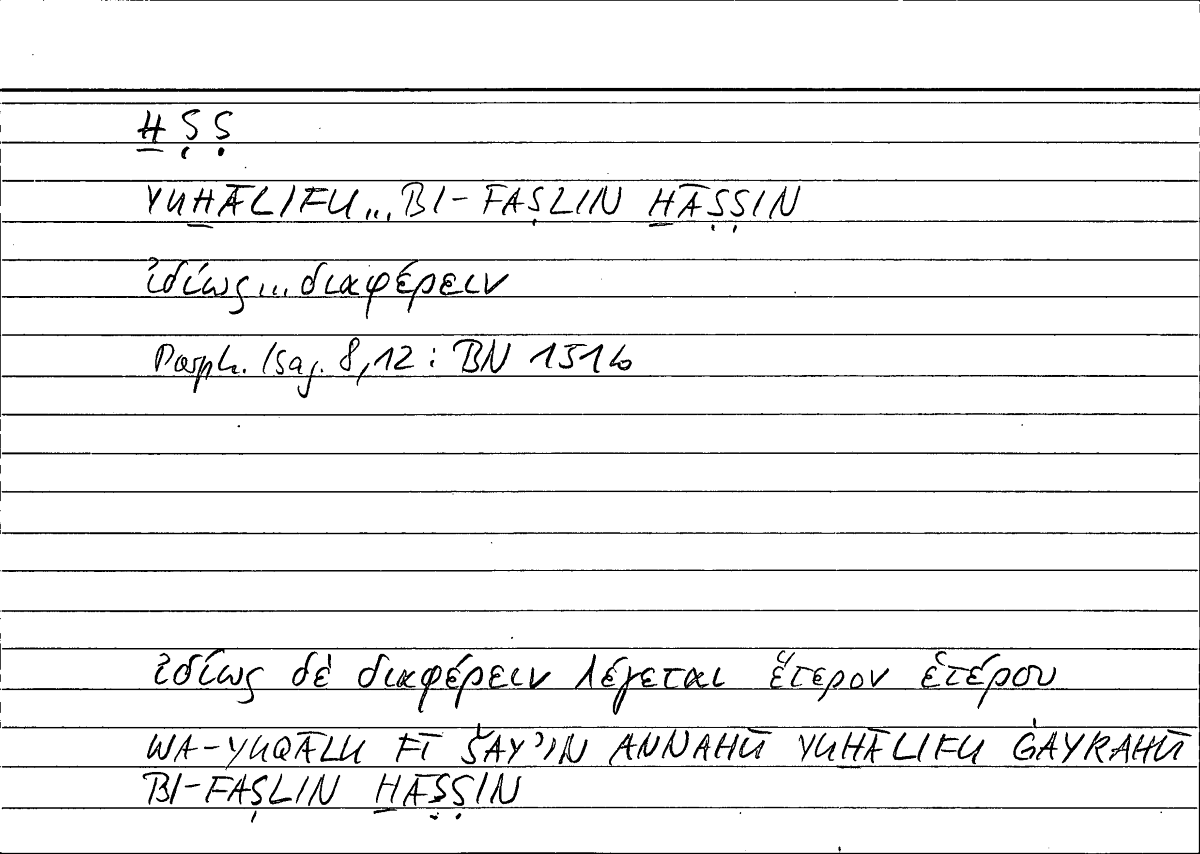 Ḫ Ṣ Ṣ
YUḪĀLIFU... BI-FAṢLIN ḪĀṢṢIN
ἰδίως... διαφέρειν
Porph. Isag. 8,12 : BN 151b
ἰδίως δὲ διαφέρειν λέγεται ἕτερον ἑτέρου
WA-YUQĀLU FĪ ŠAY'IN ANNAHŪ YUḪĀLIFU ĠAYRAHŪ
BI-FAṢLIN ḪĀṢṢIN